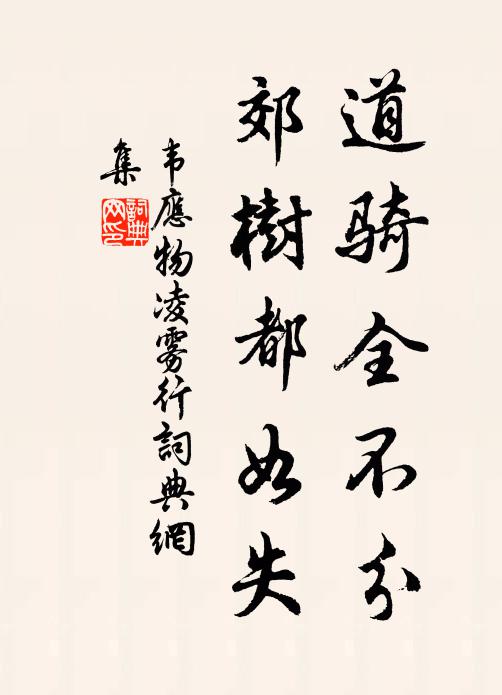 道骑全不分
郊樹都如失
韦應物凌雾行詞典網
集
詞典網